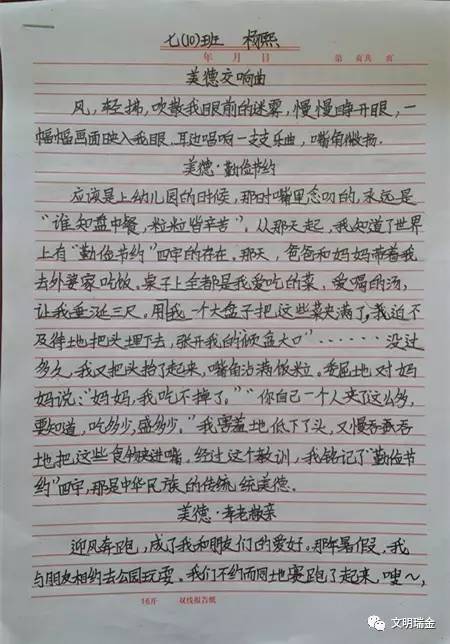 七(10)班 杨熙
年 月 日 第 页共 页
美德交响曲
风，轻拂，吹散我眼前的迷雾，慢慢睁开眼，一
幅幅画面映入我眼。耳边唱响一支支乐曲，嘴角微扬。
美德·勤俭节约
应该是上幼儿园的时候，那时嘴里念叨的，永远是
“谁知盘中餐，粒粒皆辛苦”。从那天起，我知道了世界
上有“勤俭节约”四字的存在。那天，爸爸和妈妈带着我
去外婆家吃饭。桌子上全都是我爱吃的菜，爱喝的汤，
让我垂涎三尺。用我一个大盘子把这些菜夹满了，我迫不
及待地把头埋下去，张开我的“血盆大口”……没过
多久，我又把头抬了起来，嘴角沾满饭粒。委屈地对妈
妈说：“妈妈，我吃不掉了。”“你自己一个人夹了这么多，
要知道，吃多少，盛多少。”我害羞地低下了头，又慢吞吞
地把这些食物快进嘴。经过这个教训，我铭记了“勤俭节
约”四字，那是中华民族的传统统美德。
美德·孝老敬亲
迎风奔跑，成了我和朋友们的爱好。那年暑假，我
与朋友相约去公园玩耍。我们不约而同地赛跑了起来，嗖～，
16开 双线报告纸
文明瑞金